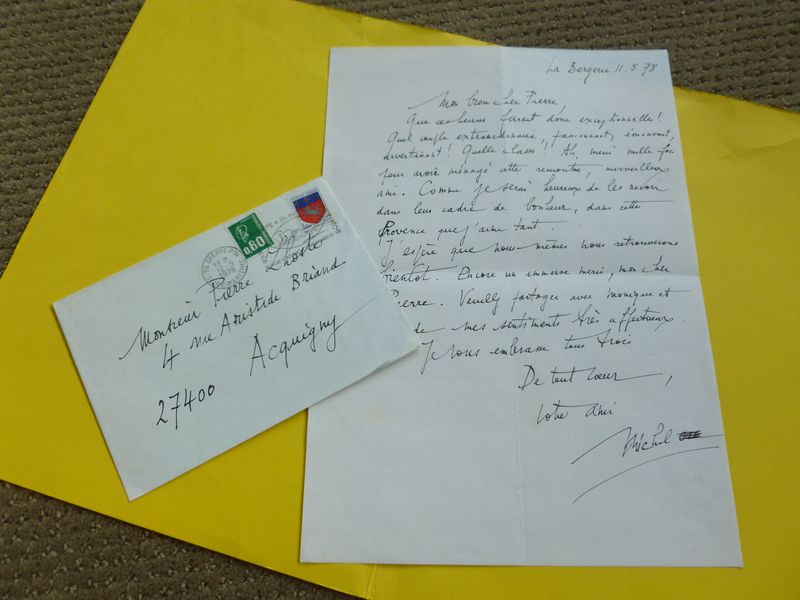 La Bergerie 11.5.78
Mon bien cher Pierre,
Que ces heures furent donc exceptionnelles!
Quel couple extraordinaire, passionnant, émouvant,
divertissant! Quelle classe! Ah, merci mille fois
pour avoir ménagé cette rencontre, merveilleux
ami. Comme je serai heureux de les revoir
dans leur cadre de bonheur, dans cette
Provence que j'aime tant.
J'espère que nous-mêmes nous retrouverons
bientôt. Encore un immense merci, mon cher
Pierre. Veuillez partager avec monique et
de mes sentiments très affectueux.
Je vous embrasse tous trois
De tout coeur,
votre ami
Michel
0.60
76 DIEPPE
1978
Monsieur Pierre Lhoste
4 rue Aristide Briand
Acquigny
27400